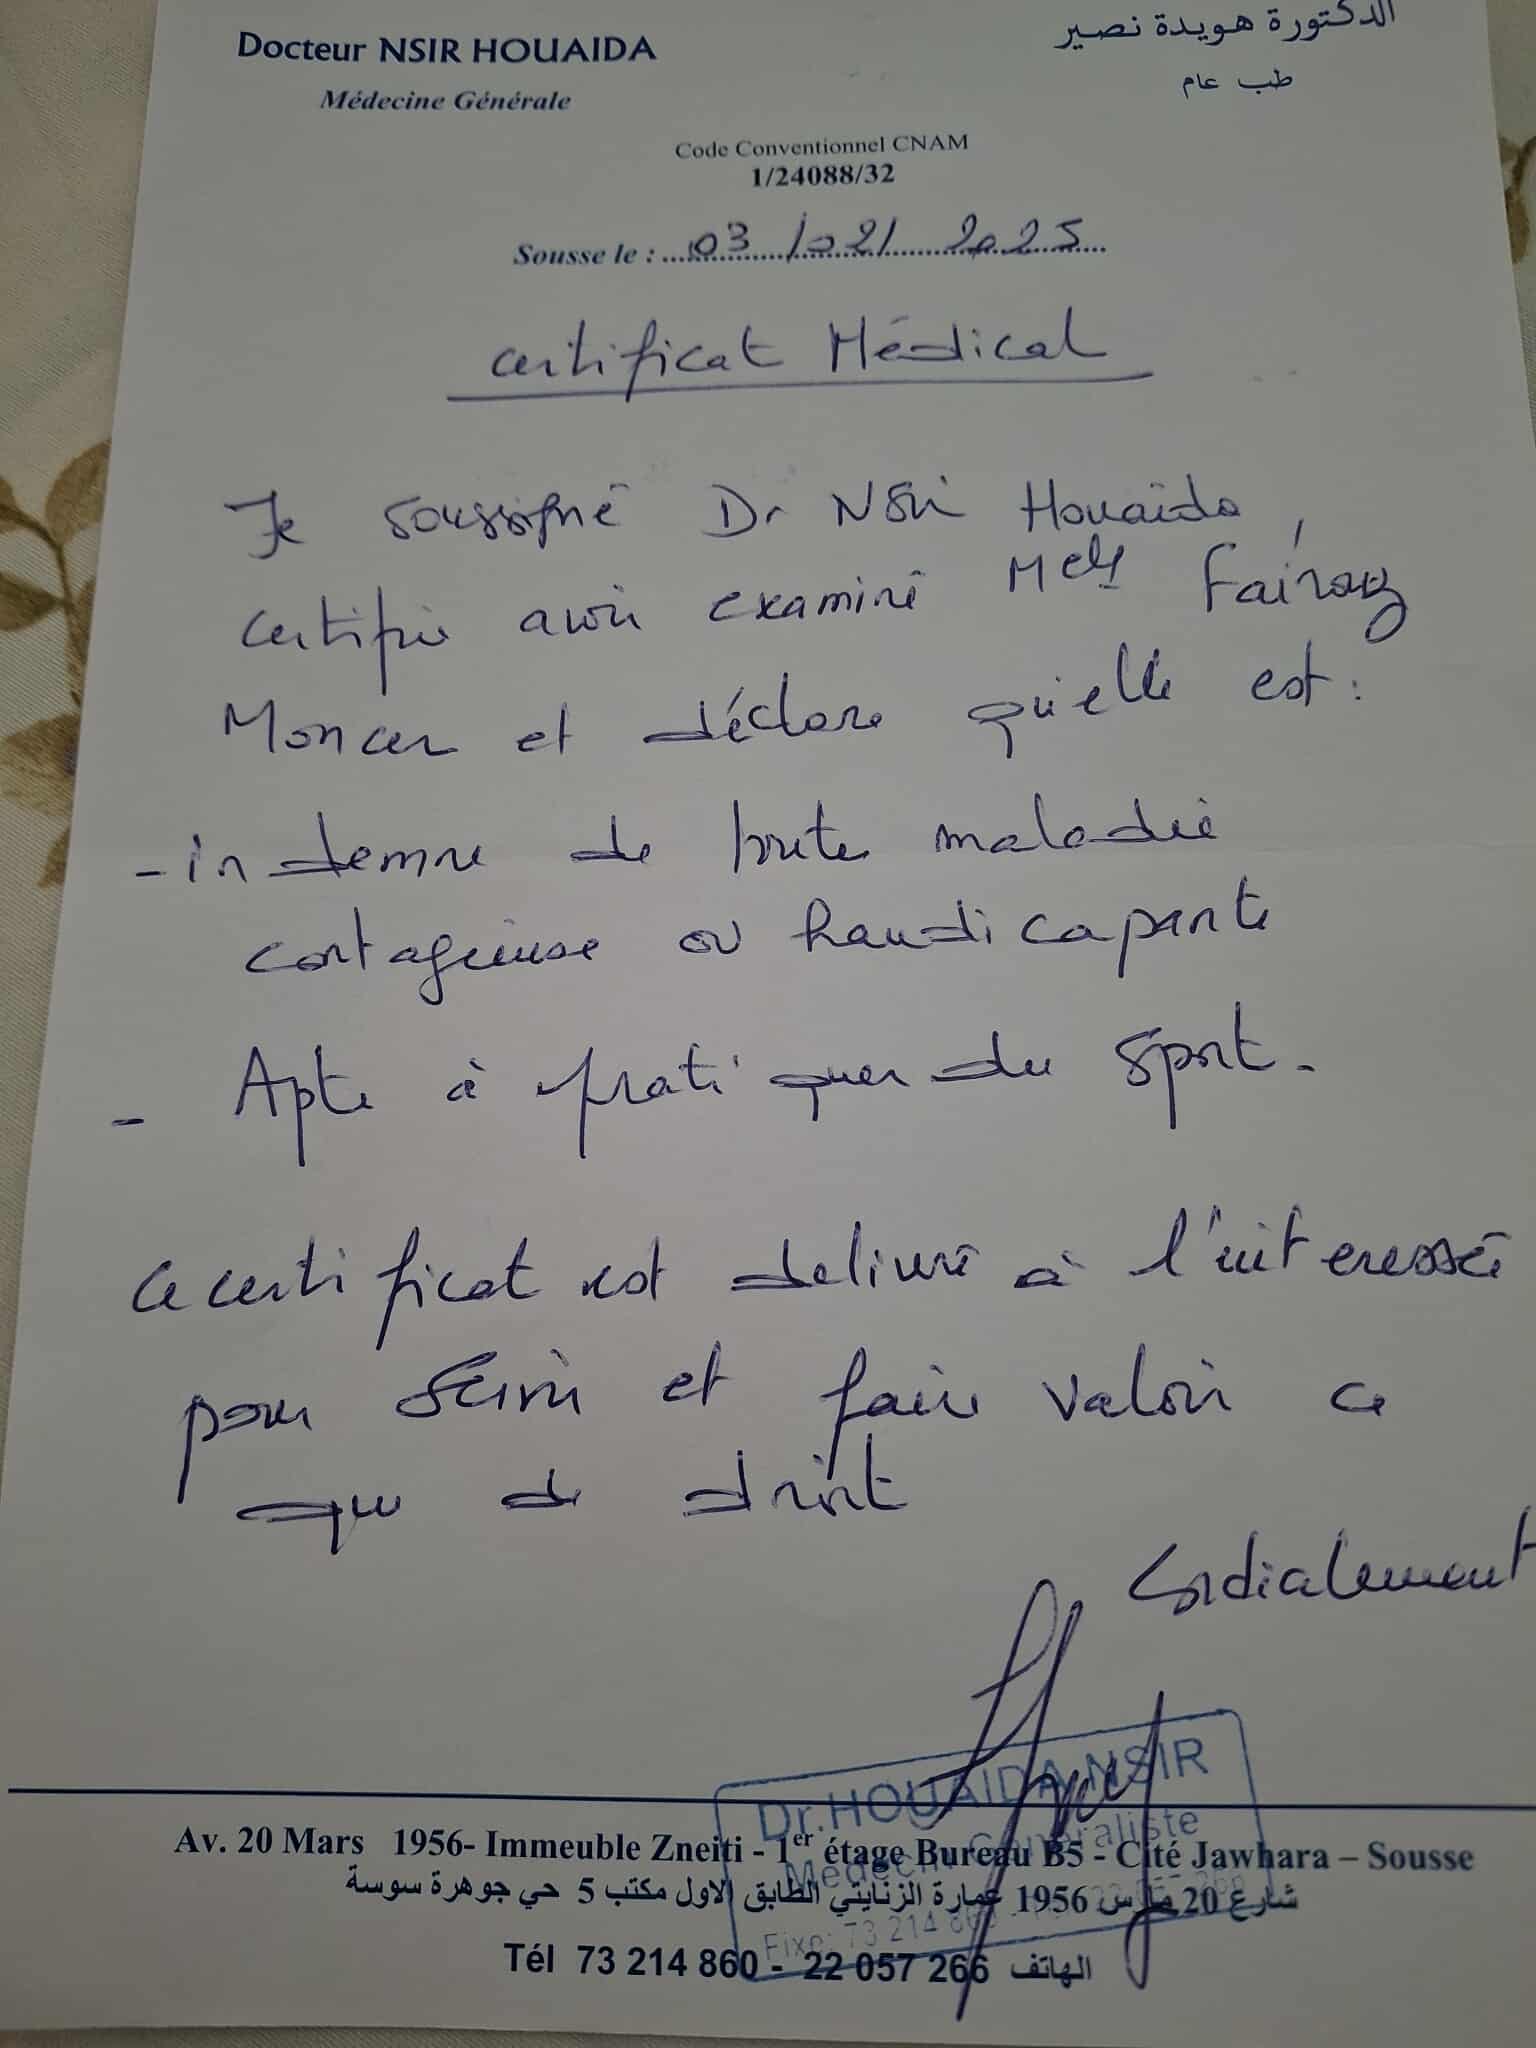 Docteur NSIR HOUAIDA
Médecine Générale
الدكتورة هويدة نصير
طب عام
Code Conventionnel CNAM
1/24088/32
Sousse le : 03/02/2025
Certificat Médical
Je soussigné Dr NSir Houaida,
certifie avoir examiné Melle Fairouz
Moncer et déclare qu'elle est :
- indemne de toute maladie
contagieuse ou handicapante
- Apte à pratiquer du sport.
Ce certificat est delivré à l'interessée
pour servir et faire valoir ce
que de droit
Cordialement
Dr.HOUAIDA NSIR
Médecin Généraliste
Fixe: 73 214 860
Av. 20 Mars 1956- Immeuble Zneiti - 1er étage Bureau B5 - Cité Jawhara – Sousse
شارع 20 مارس 1956 عمارة الزنايتي الطابق الاول مكتب 5 حي جوهرة سوسة
Tél 73 214 860 - 22 057 266 الهاتف